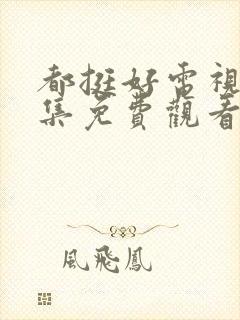 都挺好電視
集免費觀看
風飛鳳